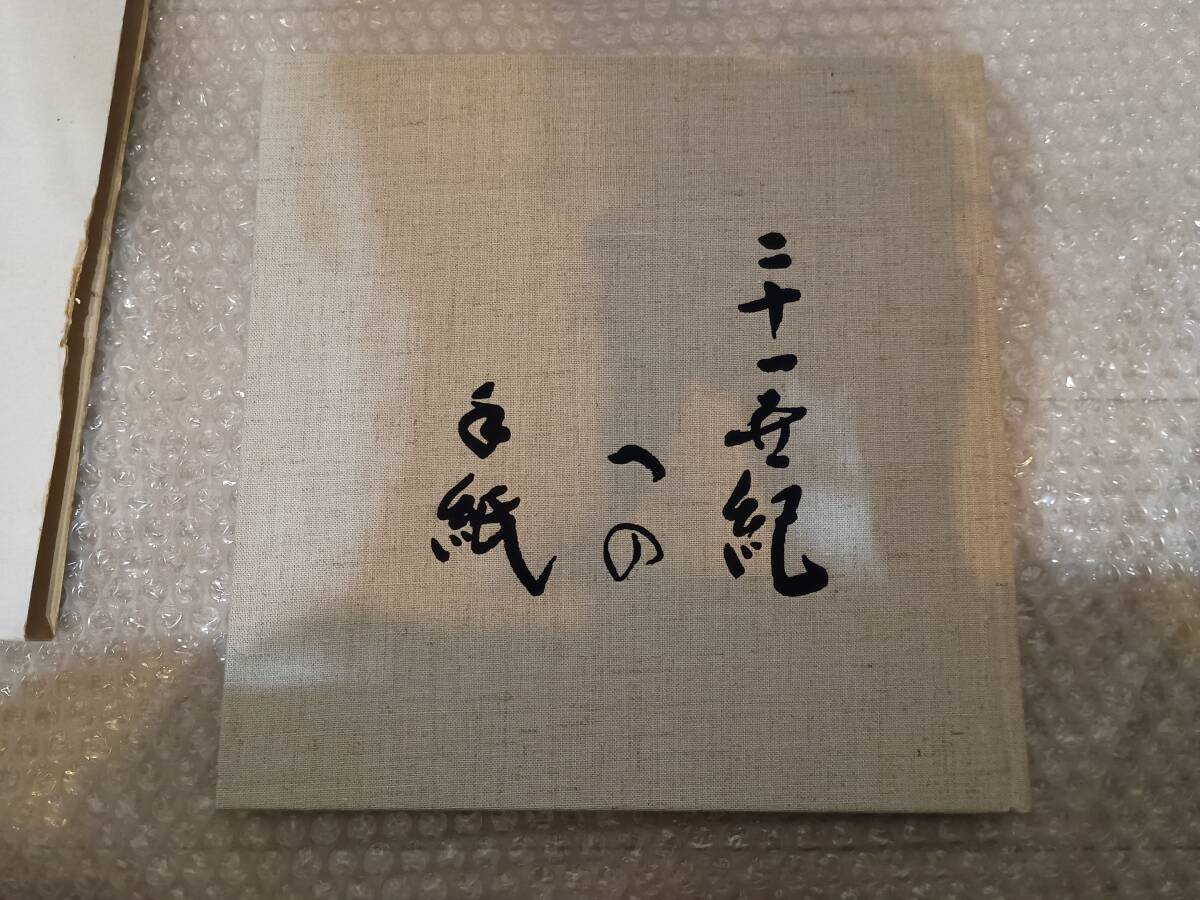 二十一世紀
への
手紙